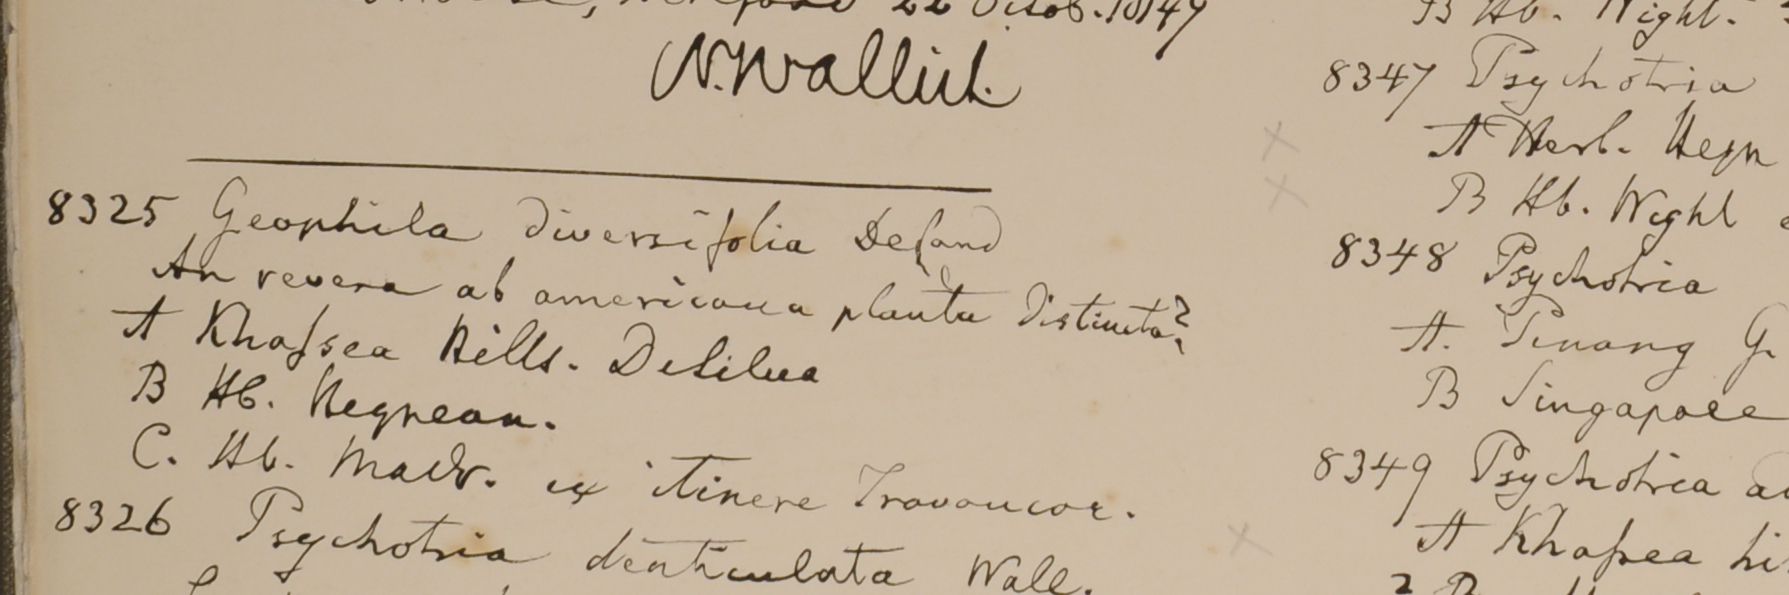 22 Octob. 1849
N. Wallich.
8325 Geophila diversifolia Decand
An revera ab americana planta distincta?
A Khassea Hills. DeSilva
B Hb. Heynean.
C. Hb. Madr. ex itinere Travancor.
8326 Psychotria denticulata Wall.
B Hb. Wight.
8347 Psychotria
A Herb. Heyn
B Hb. Wight
8348 Psychotria
A. Penang G
B Singapore
8349 Psychotria
A Khassea hi